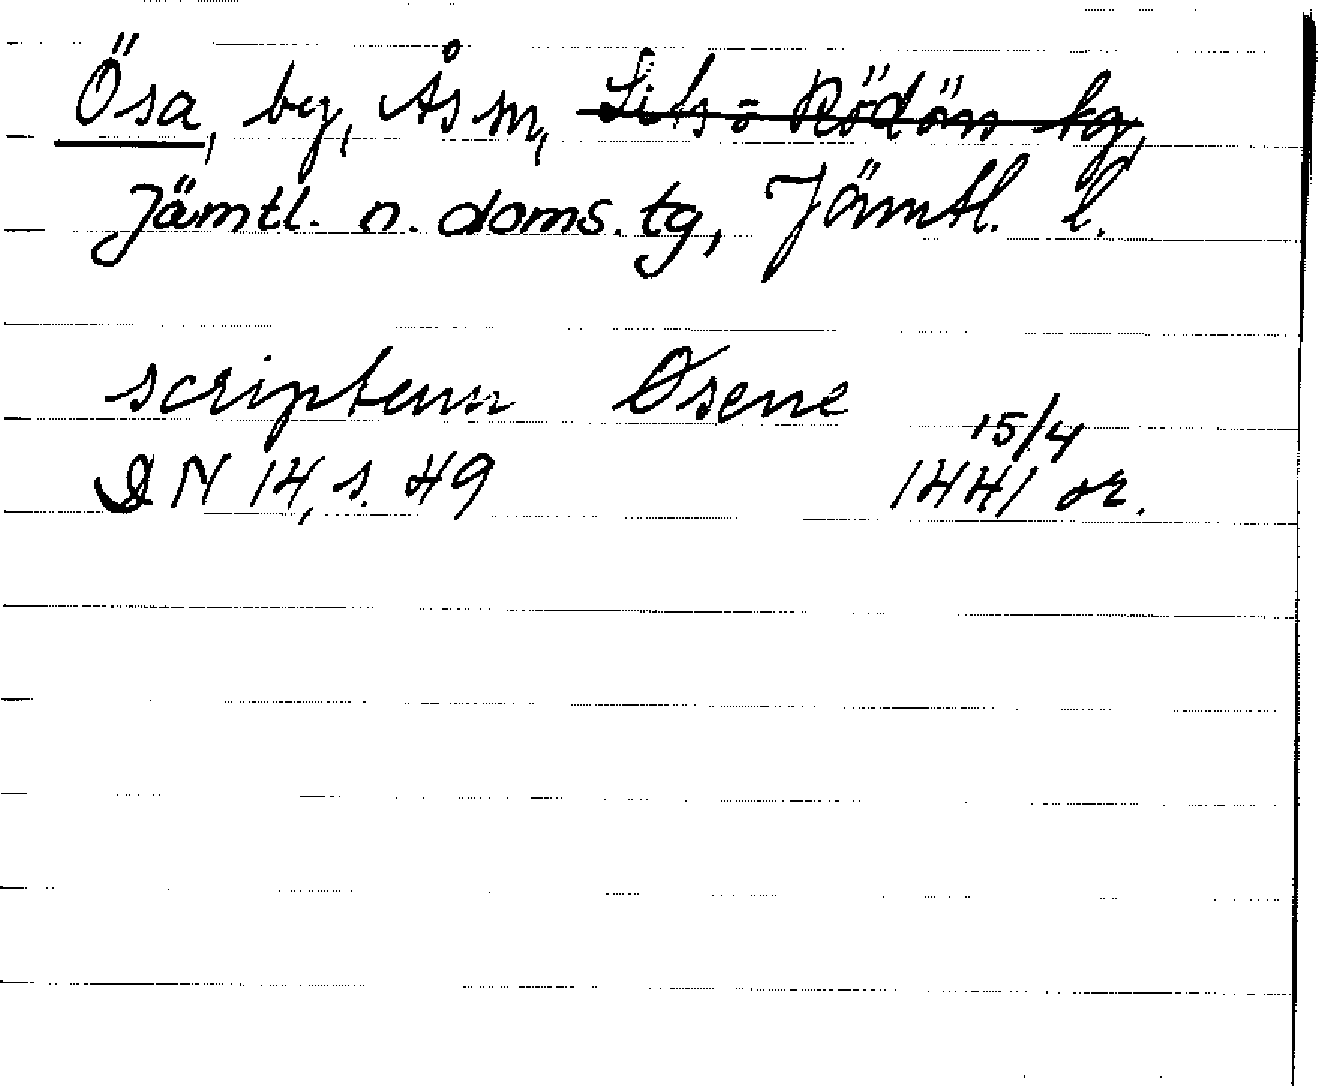 Ösa, by, Ås sn, Lits o Rödöns tg,
Jämtl. n. doms. tg, Jämtl. l.
scriptum Øsene
15/4
DN 14, s. 49 1441 or.